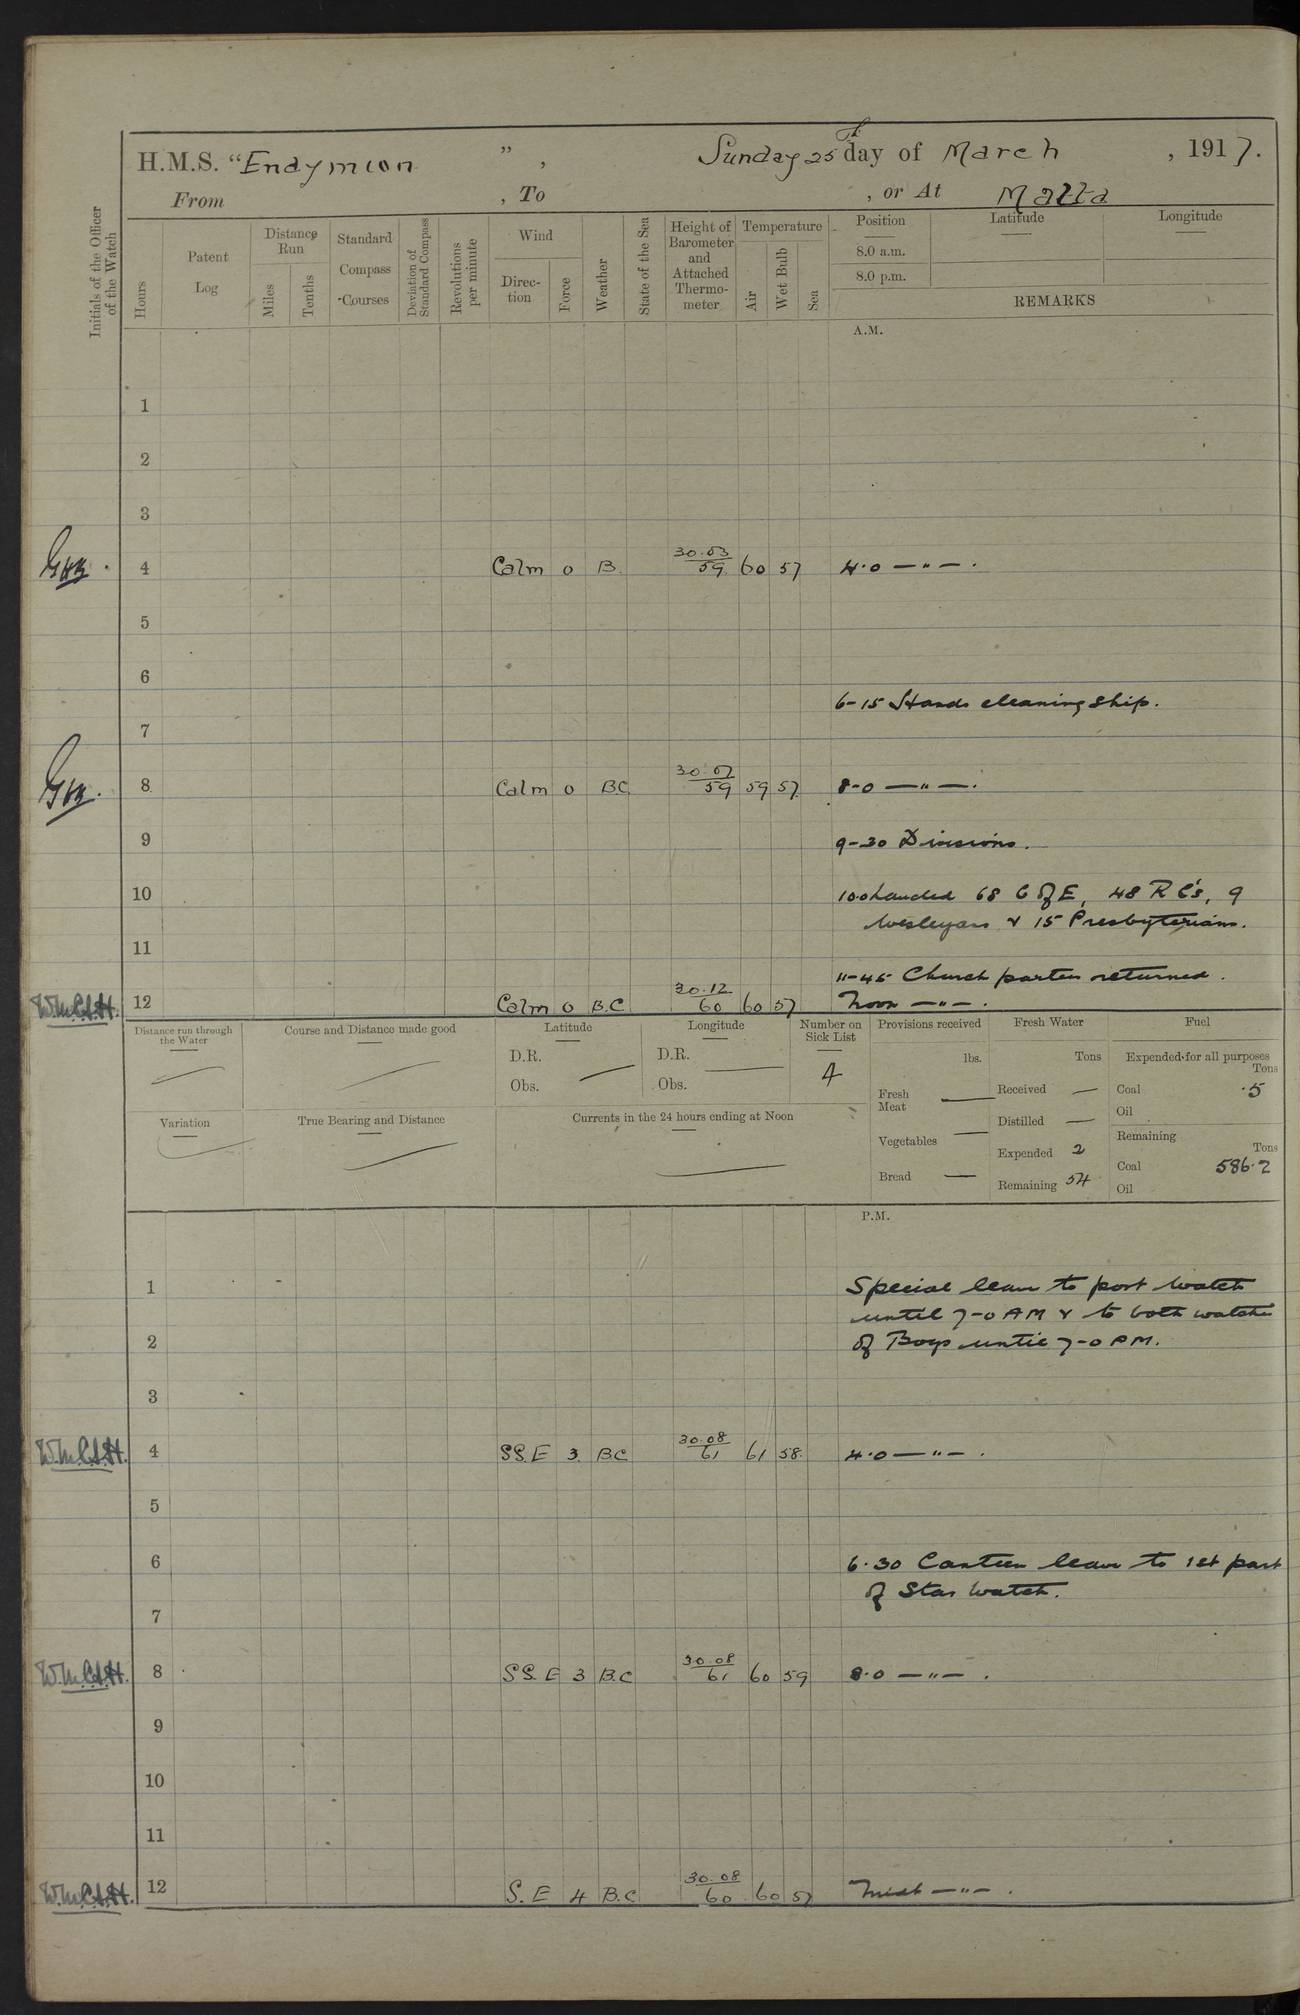 H.M.S. “Endymion ” , Sunday 25th day of March , 1917.
From , To , or At Malta
Initials of the Officer of the Watch
Hours
Patent Log
Distance Run
Miles
Tenths
Standard Compass Courses
Deviation of Standard Compass
Revolutions per minute
Wind
Direction
Force
Weather
State of the Sea
Height of Barometer and Attached Thermometer
Temperature
Air
Wet Bulb
Sea
Position
Latitude
Longitude
8.0 a.m.
8.0 p.m.
REMARKS
A.M.
1
2
3
4 Calm 0 B. 30.03 59 60 57 4.0 — " — .
5
6
6-15 Hands cleaning ship.
7
8 Calm 0 B.C. 30.07 59 59 57 8-0 — " — .
9 9-30 Divisions.
10 10.0 Landed 68 C of E, 48 R C's, 9
Wesleyans & 15 Presbyterians.
11
11-45 Church parties returned.
W.M.C.S.H. 12 Calm 0 B.C 30.12 60 60 57 Noon — " — .
Distance run through the Water
Course and Distance made good
Latitude
D.R.
Obs.
Longitude
D.R.
Obs.
Number on Sick List
4
Provisions received
lbs.
Fresh Meat
Vegetables
Bread
Fresh Water
Tons
Received —
Distilled —
Expended 2
Remaining 54
Fuel
Expended for all purposes
Tons
Coal .5
Oil
Remaining
Tons
Coal 586.2
Oil
Variation
True Bearing and Distance
Currents in the 24 hours ending at Noon
P.M.
1 Special leave to port watch
until 7-0 AM & to both watches
2 of Boys until 7-0 PM.
3
W.M.C.S.H. 4 SS.E 3 B.C 30.08 61 61 58. 4.0 — " — .
5
6 6.30 Canteen leave to 1st part
of Star watch.
7
W.M.C.S.H. 8 SS.E 3 B.C 30.08 61 60 59 8.0 — " — .
9
10
11
W.M.C.S.H. 12 S.E 4 B.C 30.08 60 60 57 Midt — " — .